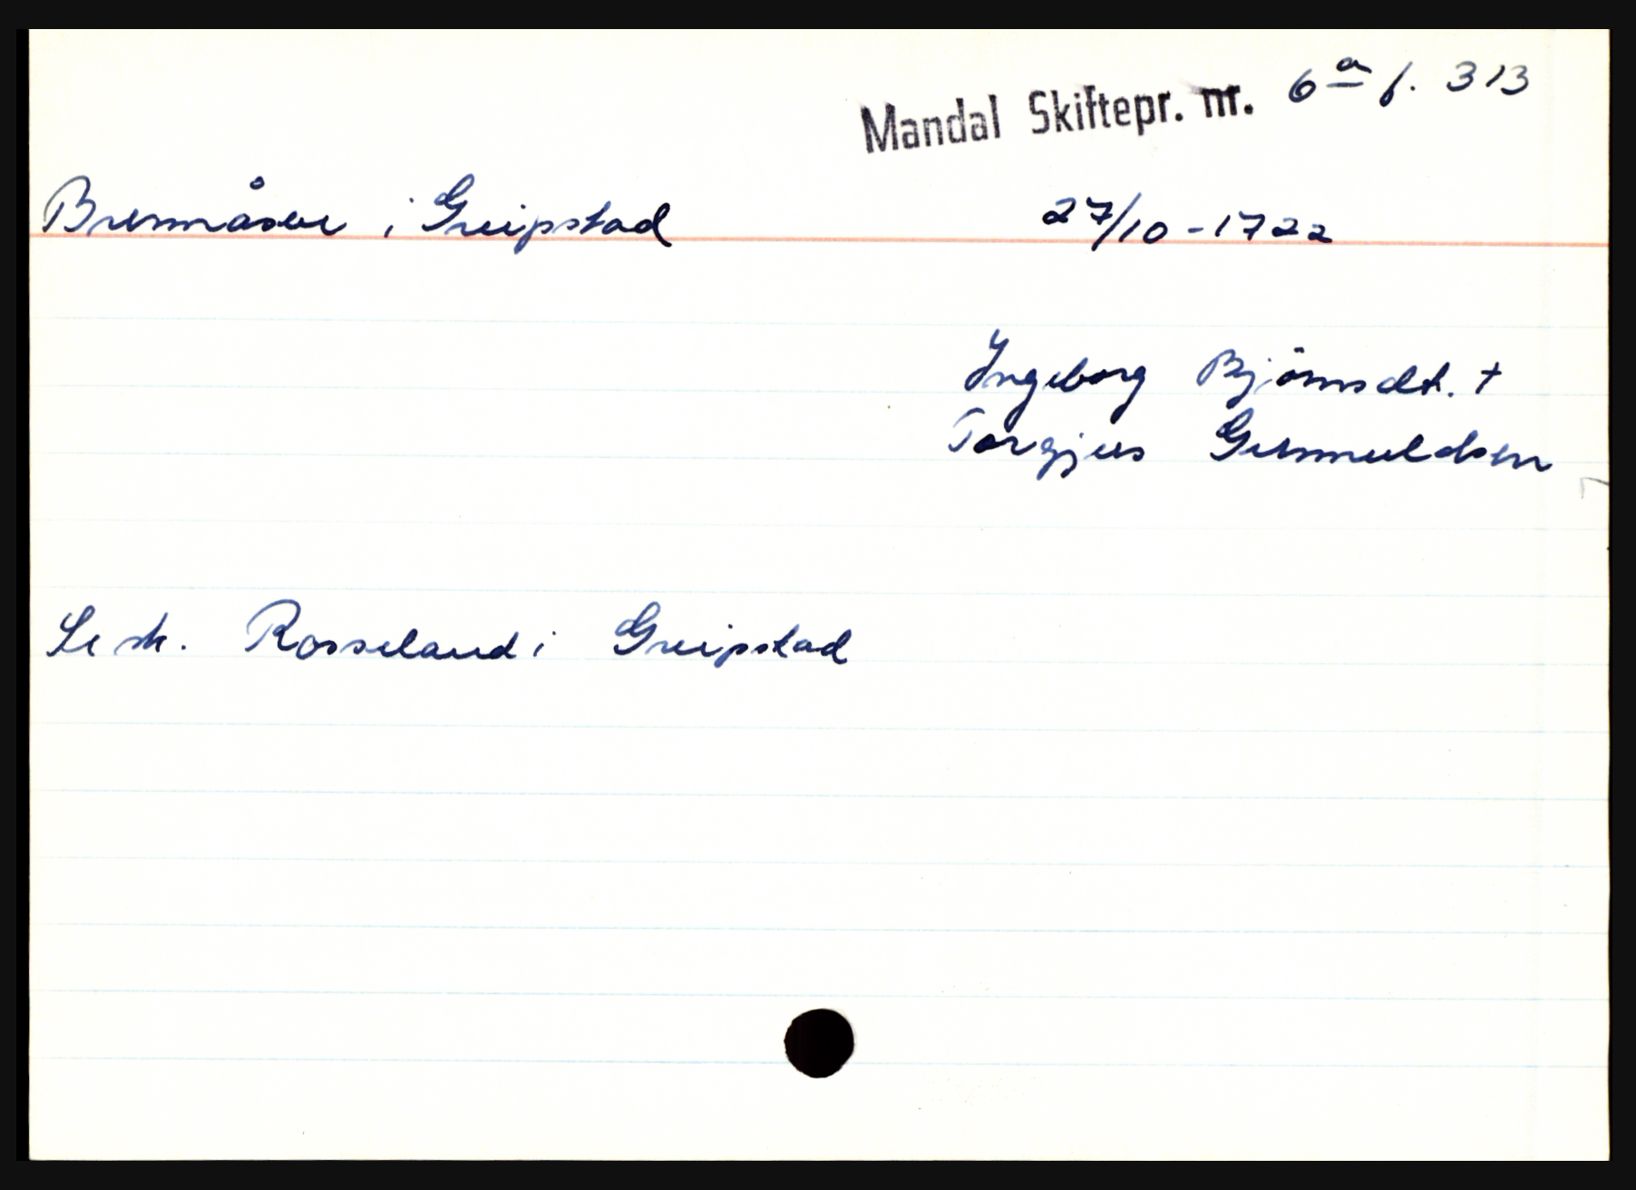 Mandal Skiftepr. nr. 6a f. 313
Brennåsen i Greipstad 27/10 - 1722
Ingeborg Bjömsdt. +
Torgjus Gunnuldsen
Se sk. Rosseland i Greipstad